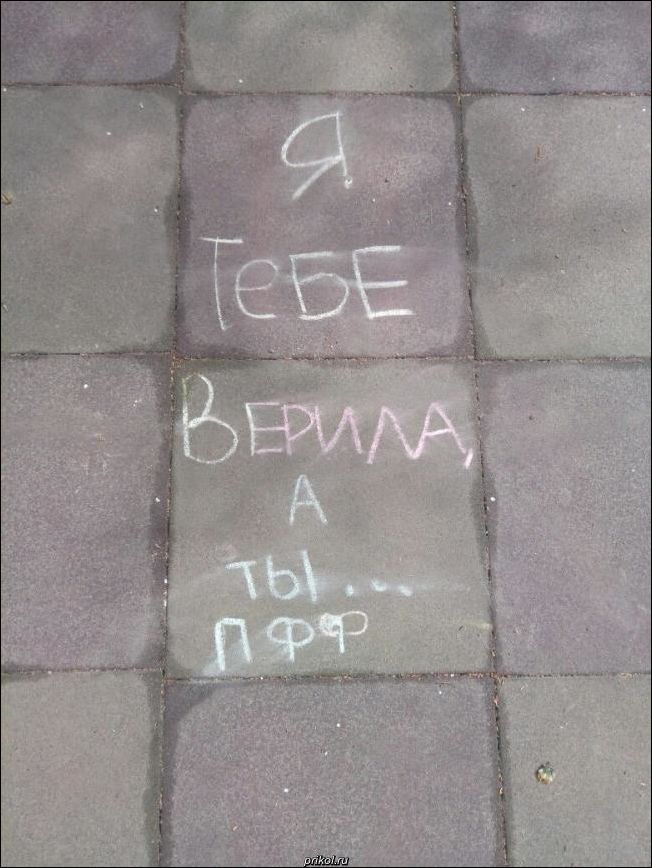 Я
ТеБЕ
ВЕРИЛА,
А
ТЫ...
ПФФ
prikol.ru